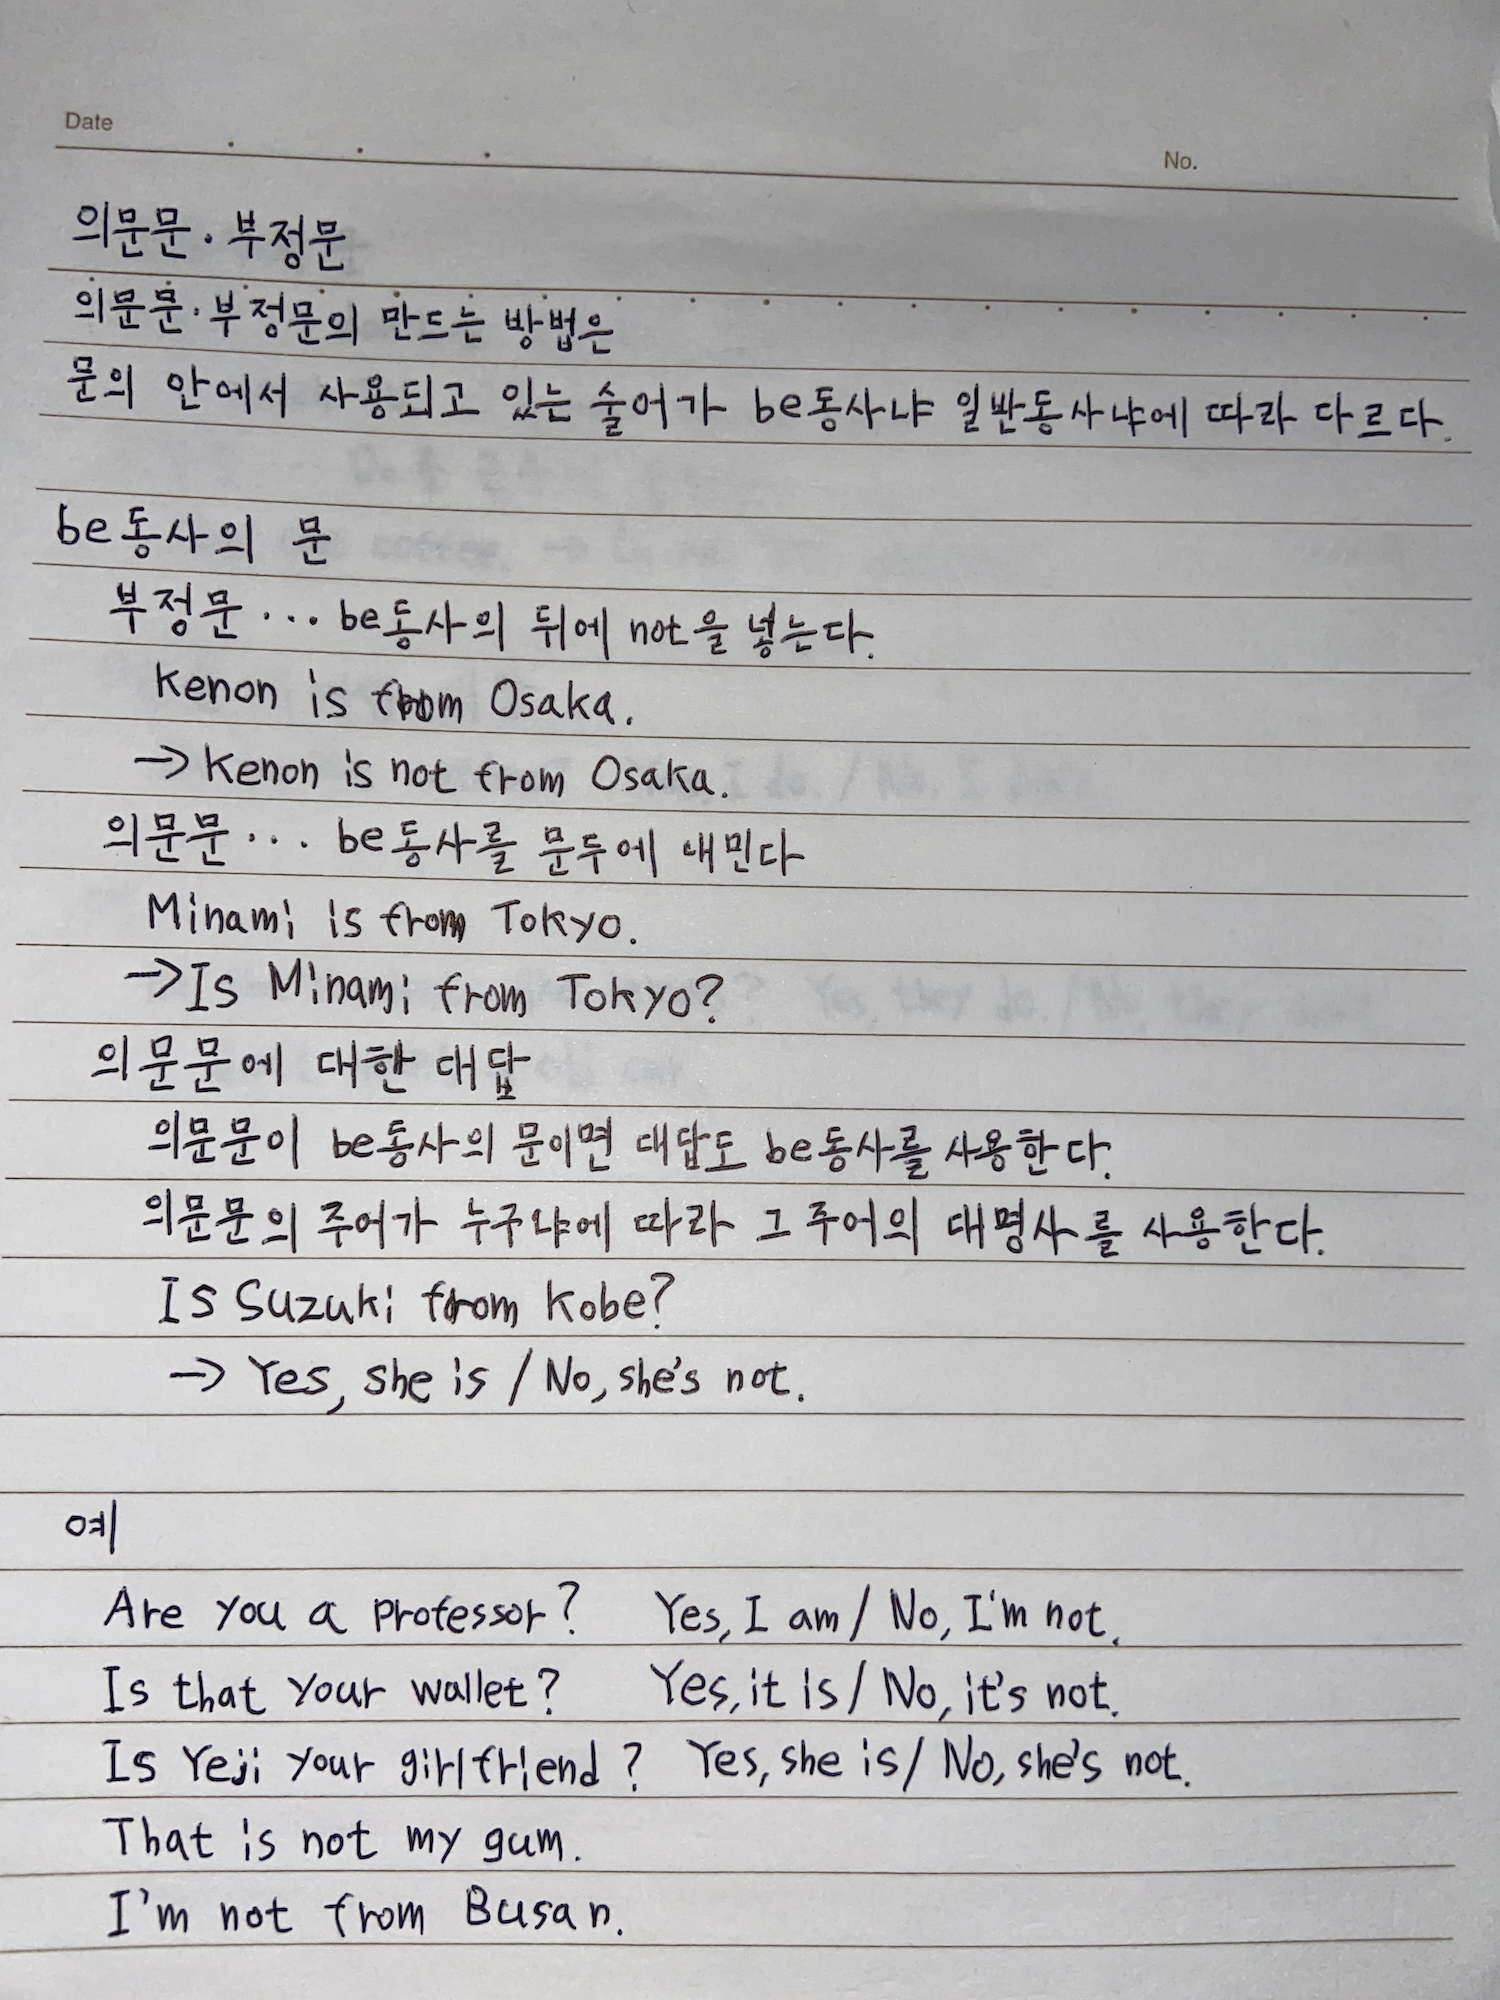 Date
No.
의문문·부정문
의문문·부정문의 만드는 방법은
문의 안에서 사용되고 있는 술어가 be동사냐 일반동사냐에 따라 다르다.
be동사의 문
부정문··· be동사의 뒤에 not을 넣는다.
Kenon is from Osaka.
→ Kenon is not from Osaka.
의문문··· be동사를 문두에 내민다
Minami is from Tokyo.
→ Is Minami from Tokyo?
의문문에 대한 대답
의문문이 be동사의 문이면 대답도 be동사를 사용한다.
의문문의 주어가 누구냐에 따라 그 주어의 대명사를 사용한다.
Is Suzuki from Kobe?
→ Yes, she is / No, she's not.
예
Are you a professor? Yes, I am / No, I'm not.
Is that your wallet? Yes, it is / No, it's not.
Is Yeji your girlfriend? Yes, she is / No, she's not.
That is not my gum.
I'm not from Busan.